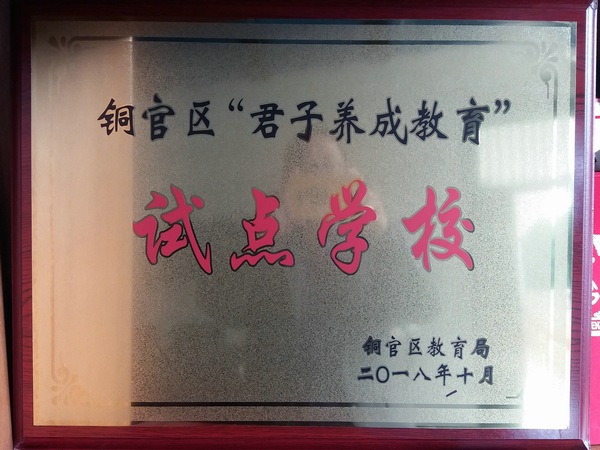 铜官区“君子养成教育”
试点学校
铜官区教育局
二〇一八年十月